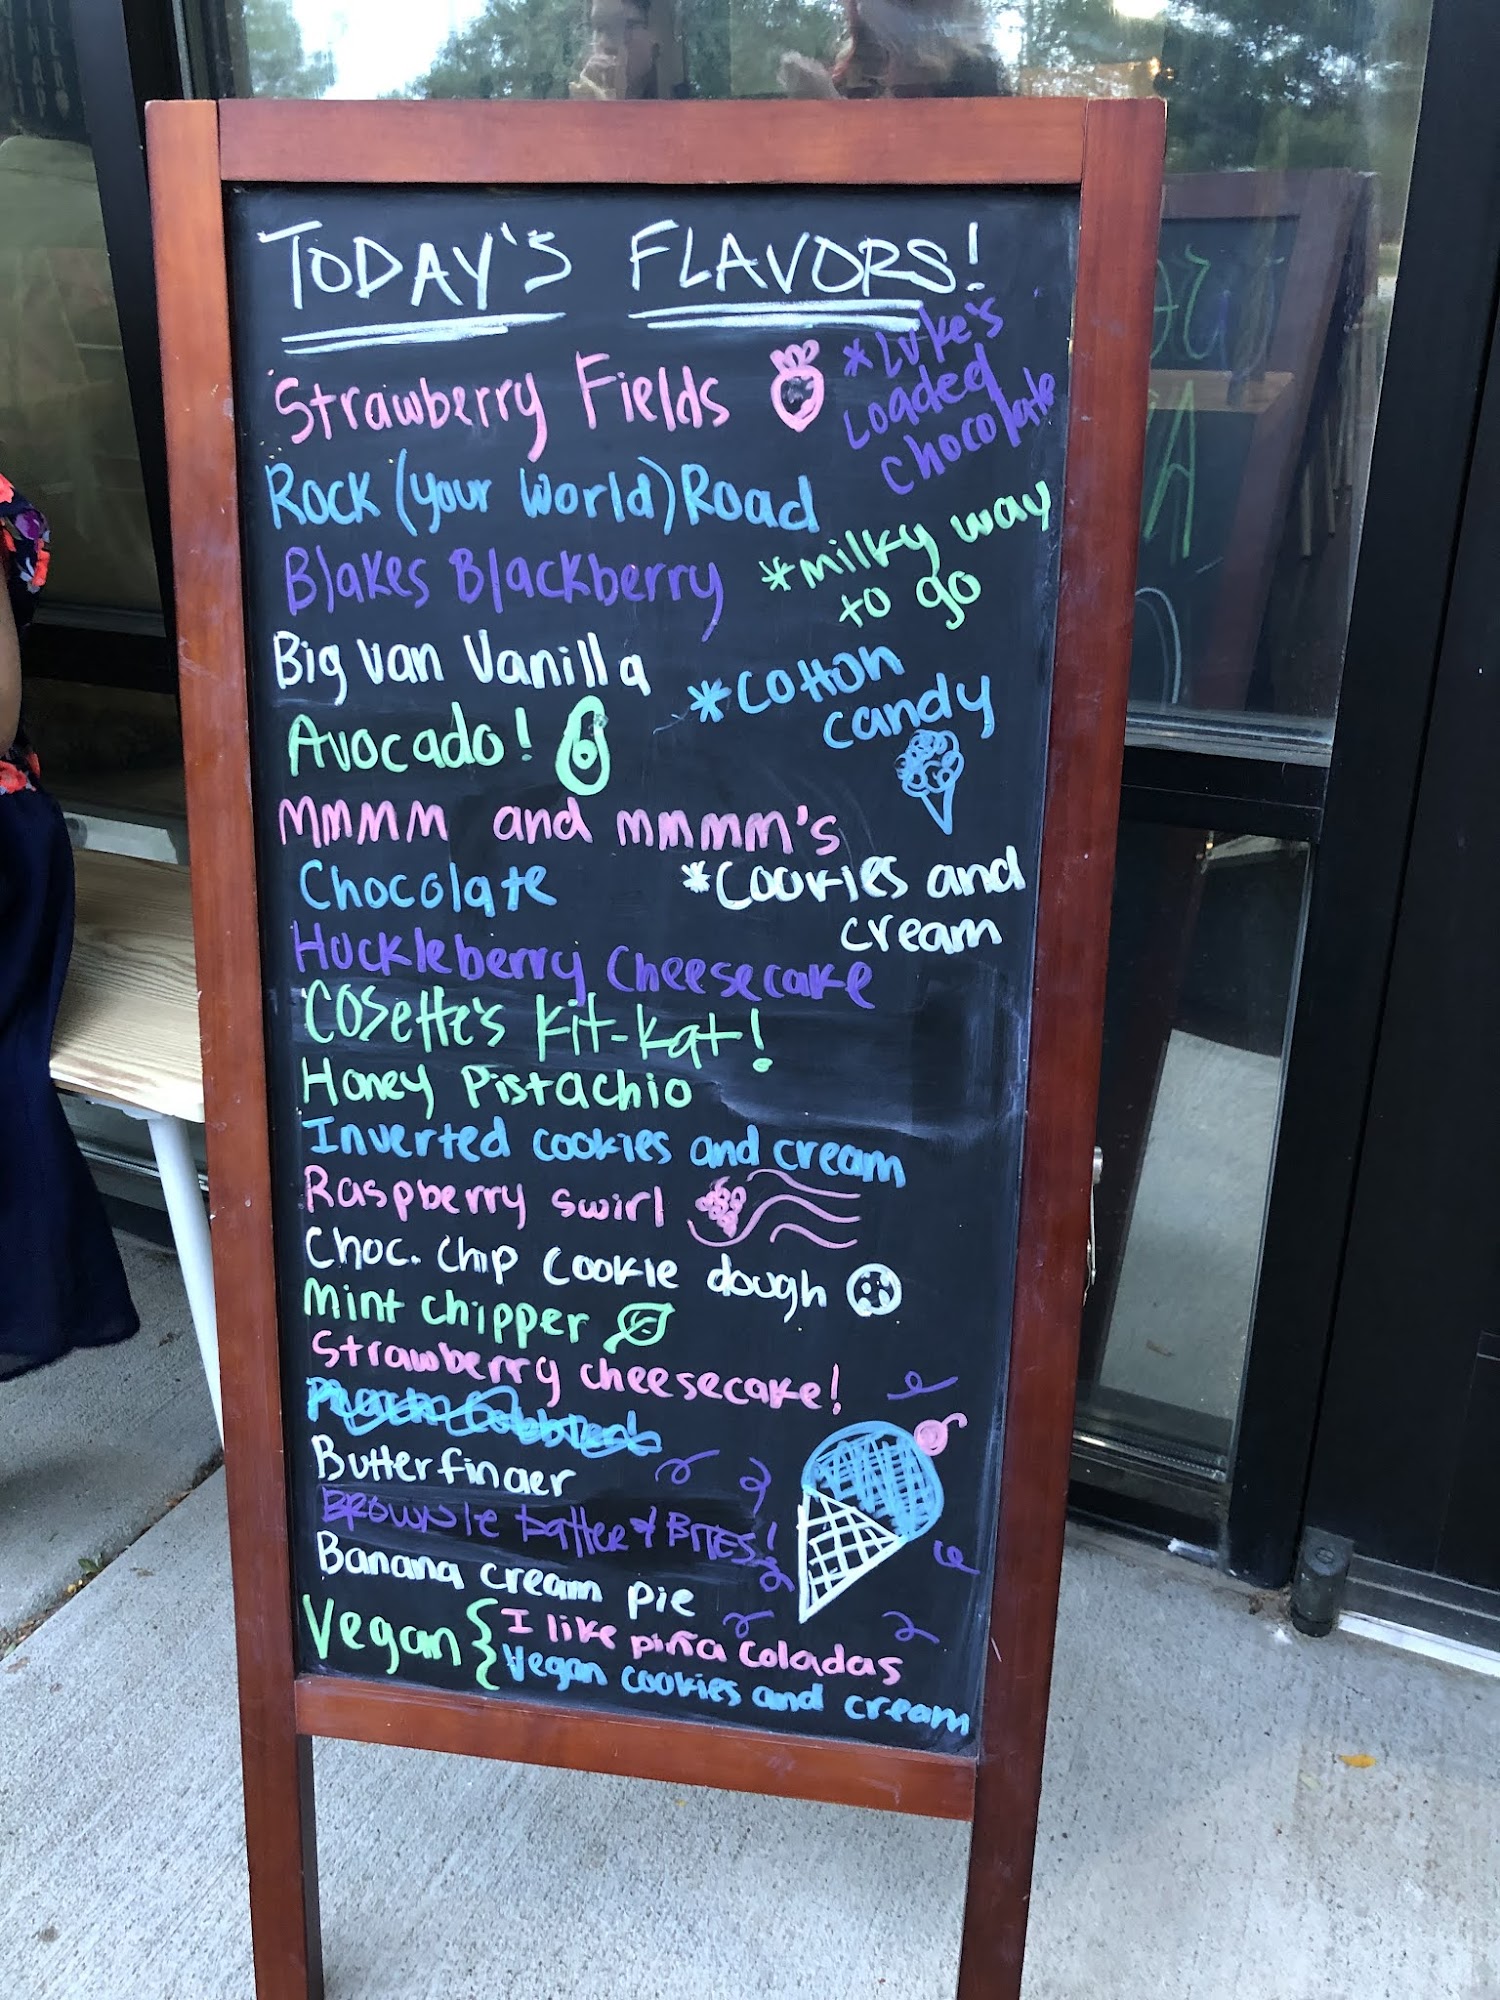 TODAY'S FLAVORS!
Strawberry Fields
*Luke's
Loaded
Chocolate
Rock (your World) Road
*milky way
to go
Blakes Blackberry
Big Van Vanilla
*cotton
candy
Avocado!
mmmm and mmmm's
Chocolate
*Cookies and
cream
Huckleberry Cheesecake
Cosette's Kit-Kat!
Honey Pistachio
Inverted cookies and cream
Raspberry swirl
Choc. Chip Cookie dough
Mint chipper
Strawberry cheesecake!
Butterfinger
Brownie batter & BITES!
Banana cream pie
Vegan { I like piña coladas
Vegan cookies and cream